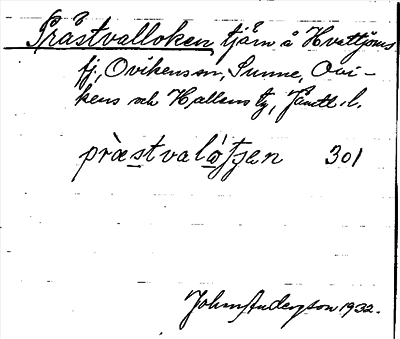 Prästvalloken tjärn å Hvattjoms
fj., Ovikens sn, Sunne, Ovi-
kens och Hallens tg, Jämtl. l.
pràestvalåtjen 301
John Anderson 1932.